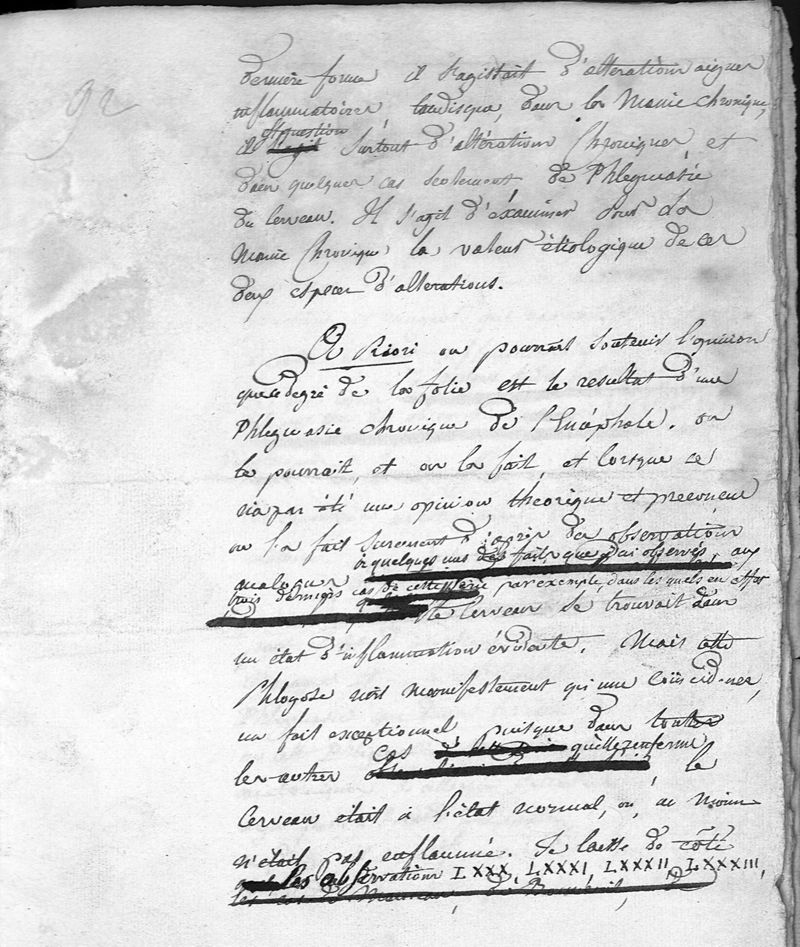 92
dernière forme il s'agissait d'altérations aigues
inflammatoires, tandisque, dans la Manie chronique,
il est question surtout d'altérations Chroniques, et
dans quelques cas seulement de Phlegmasie
du Cerveau. Il s'agit d'éxaminer dans la
Manie Chronique la valeur étiologique de ces
deux especes d'alterations.
A Priori on pourrait soutenir l'opinion
que ce degré de la folie est le resultat d'une
Phlegmasie chronique de l'Encéphale. on
le pourrait, et on l'a fait, et lorsque ce
n'a pas été une opinion théorique et preconçue
on l'a fait surement d'après des observations
analogues à quelques uns des faits que j'ai observés, aux
trois derniers cas de cette série par exemple, dans les quels en effet
le Cerveau se trouvait dans
un état d'inflammation évidente. Mais cette
Phlogose n'est manifestement qu'une coïncidence,
un fait exceptionnel, puisque dans toutes
les autres cas qu'elle renferme, le
Cerveau était à l'état normal, ou, au moins
n'était pas enflammé. Je laisse de côté
les observations LXXX, LXXXI, LXXXII, LXXXIII,